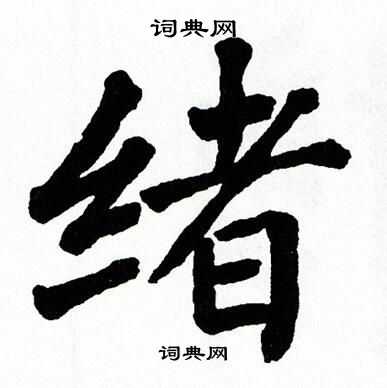 词典网
绪
词典网